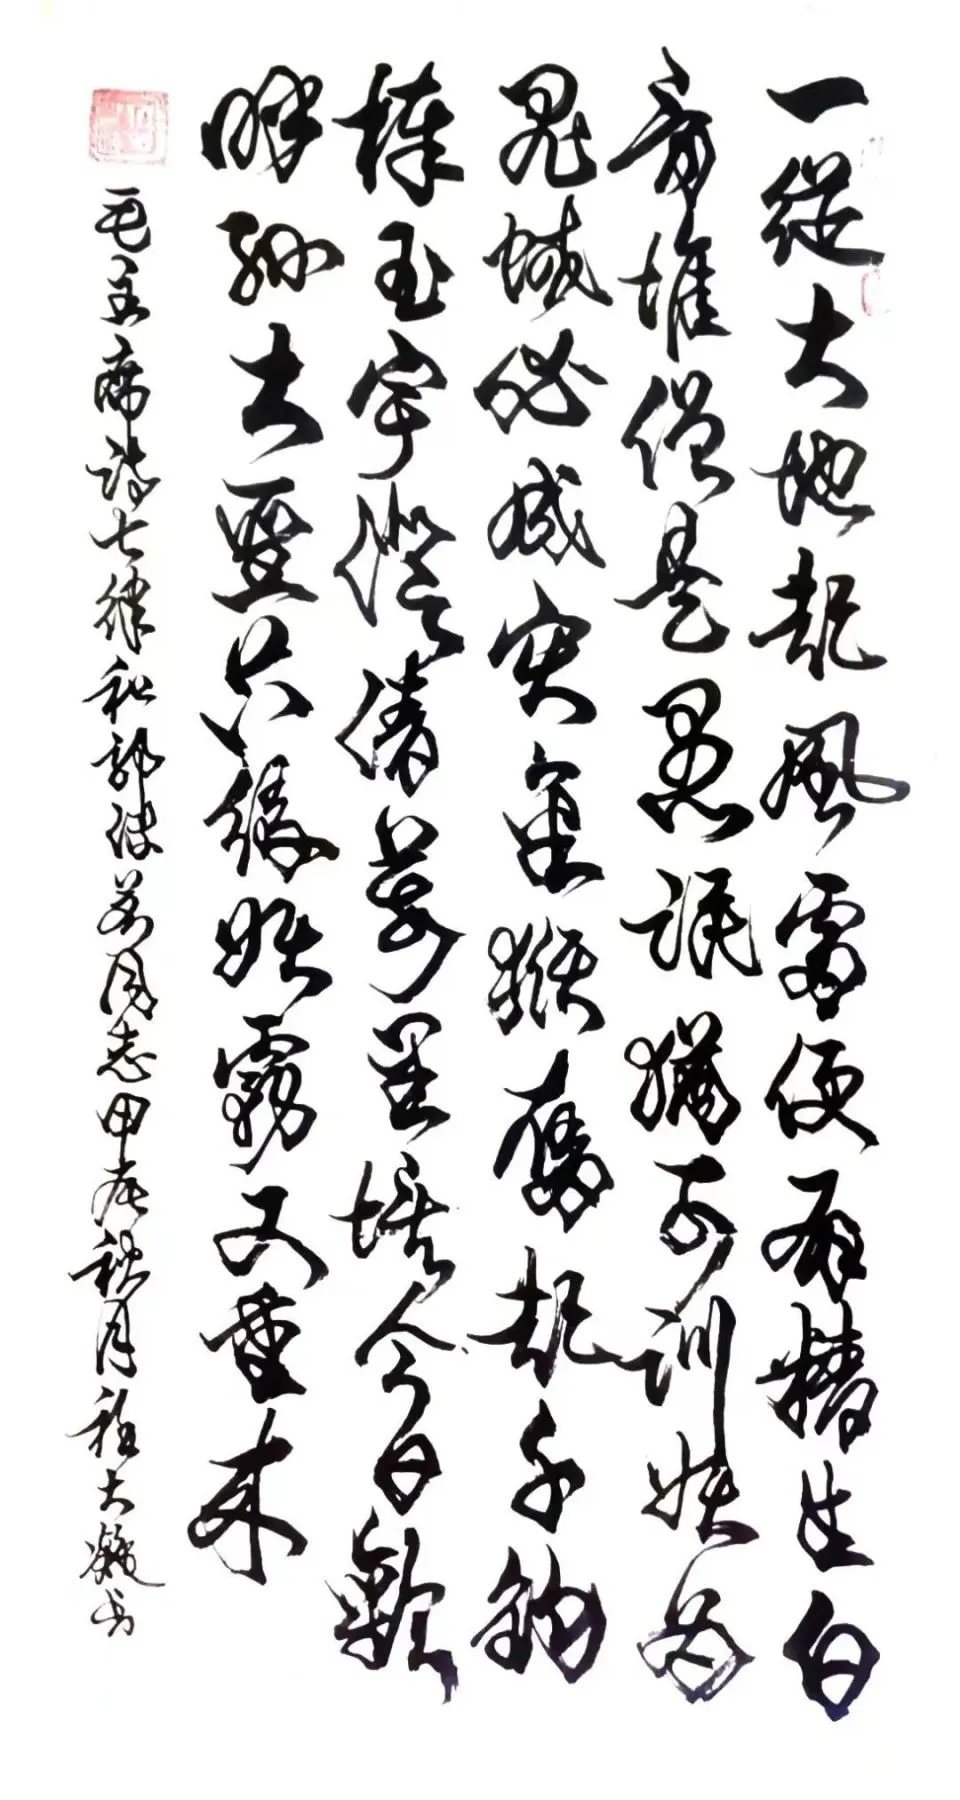 一從大地起風雷便有精生白
骨堆僧是愚氓猶可訓妖为
鬼蜮必成灾金猴奮起千鈞
棒玉宇澄清萬里埃今日歡
呼孫大聖只緣妖霧又重来
毛主席詩七律和郭沫若同志甲辰秋月程大凝书